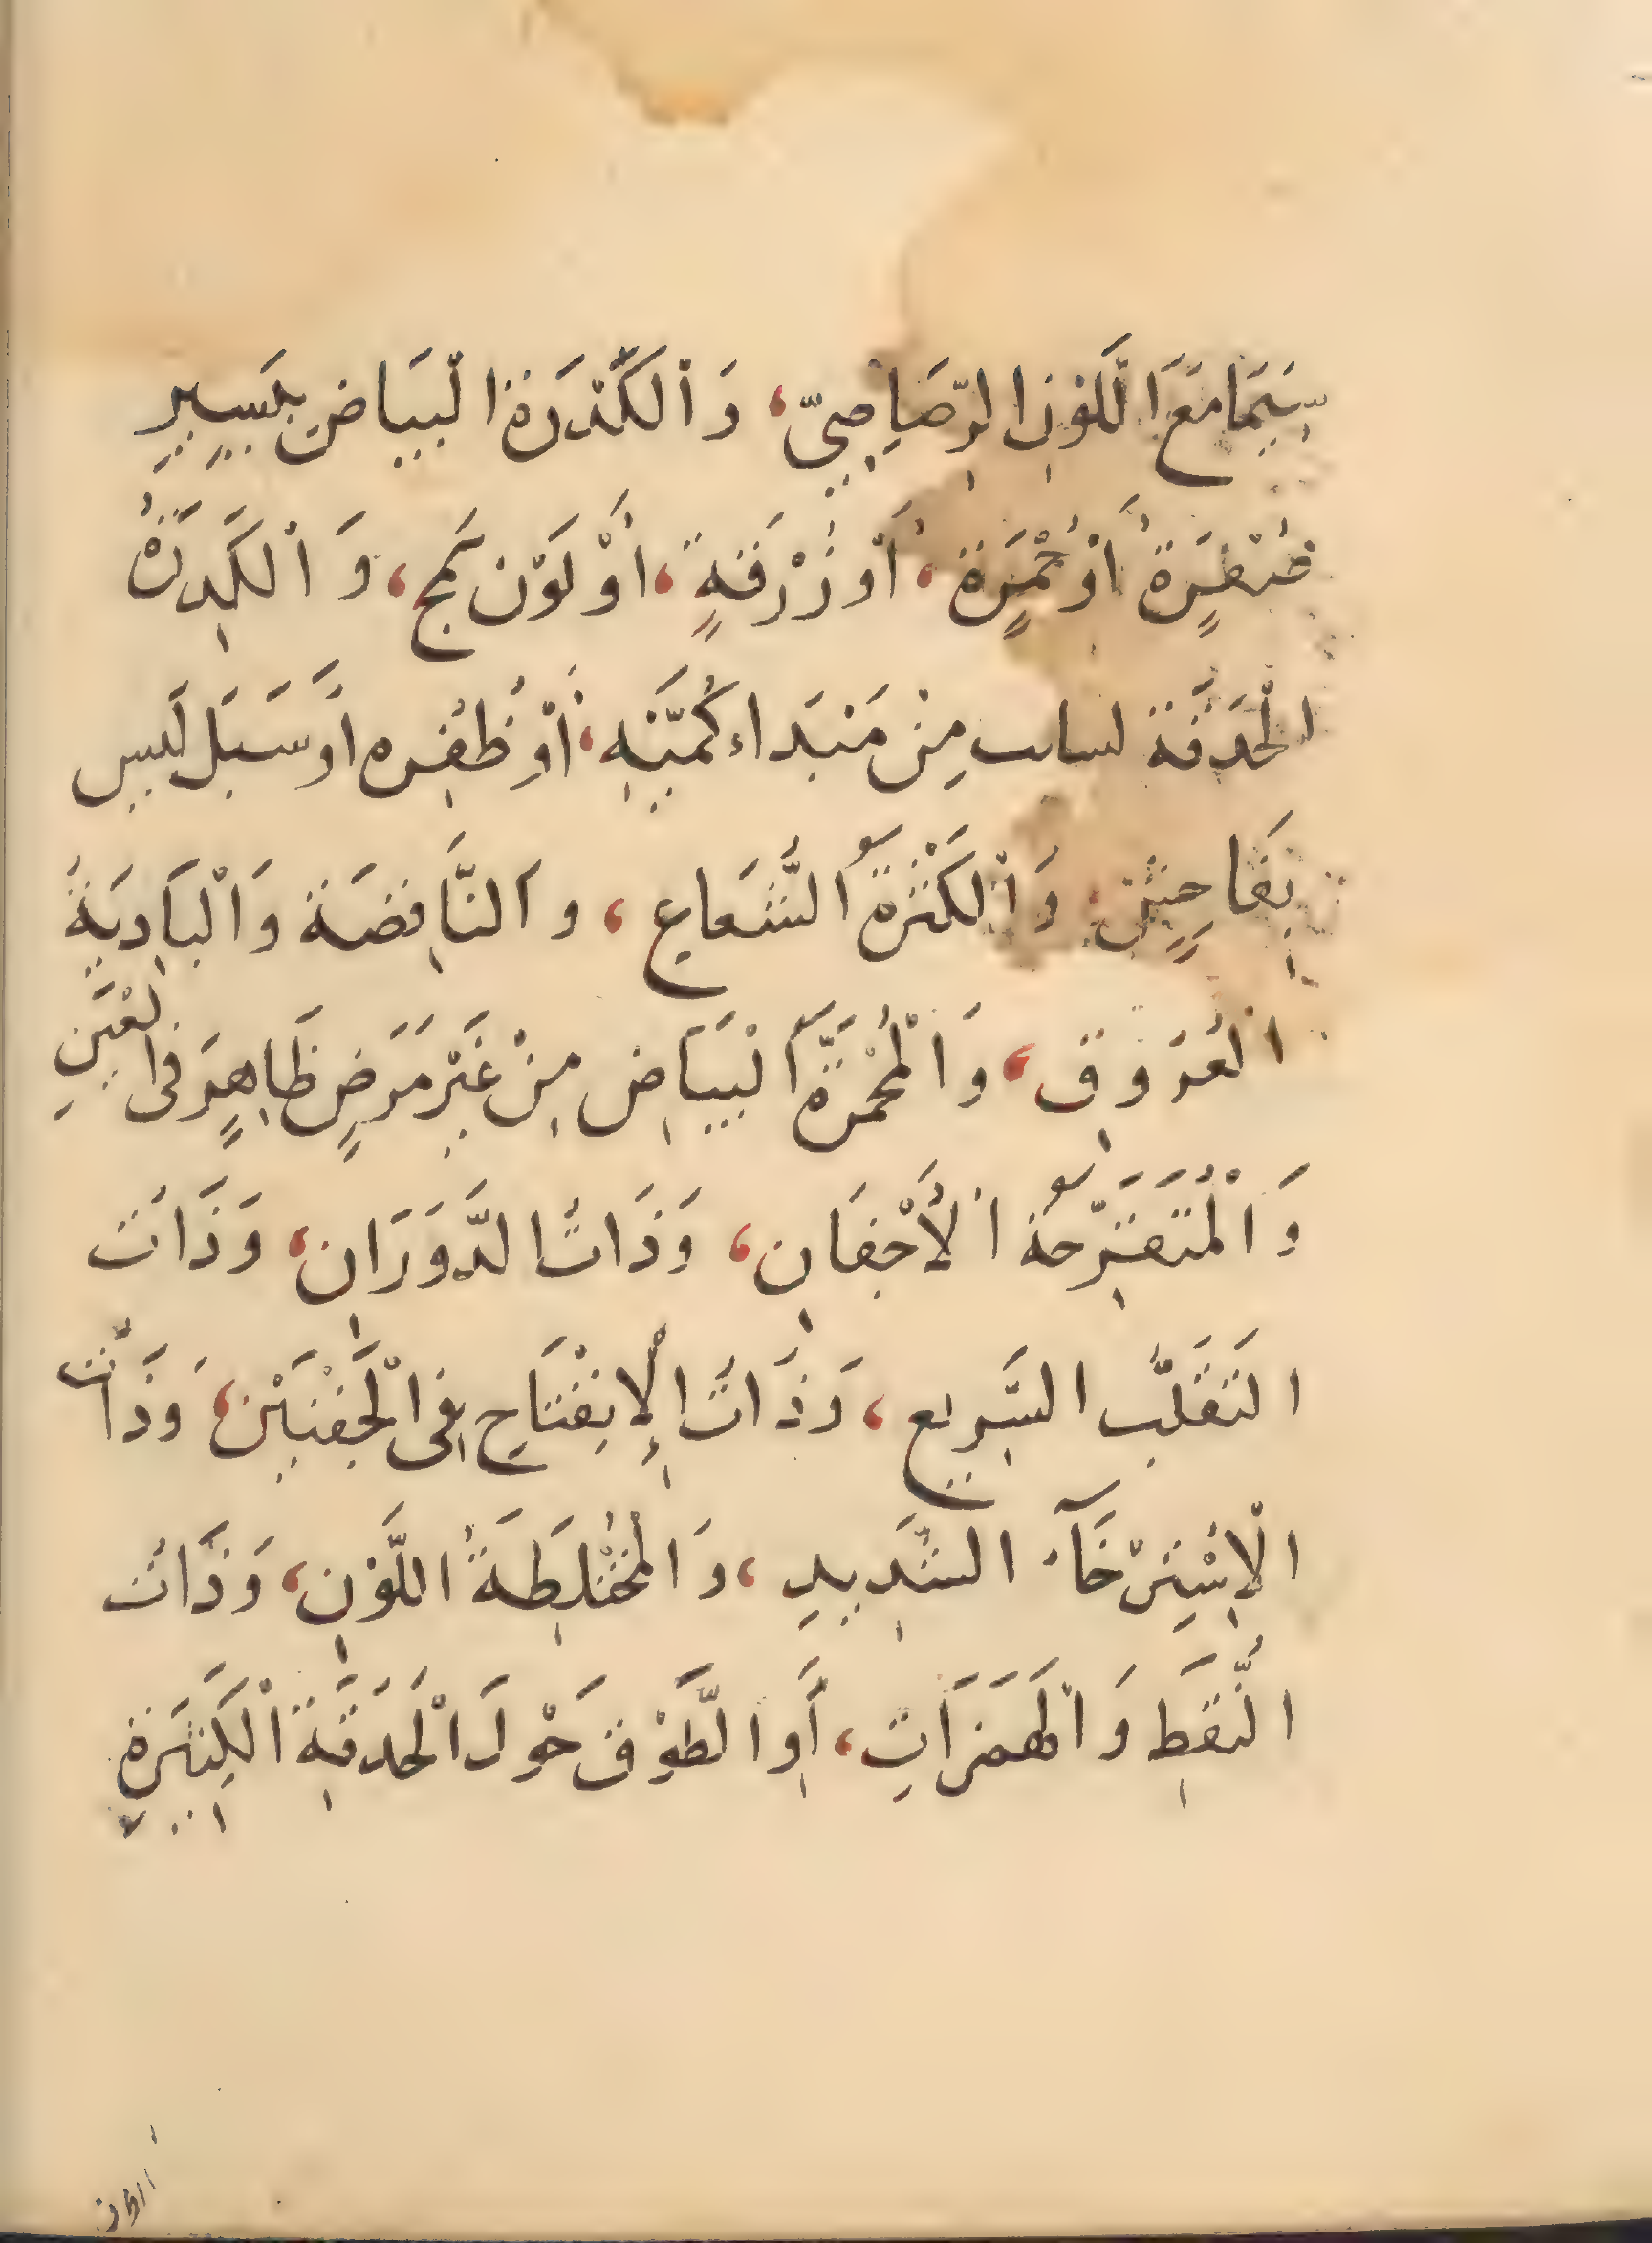 سِيَّمَا مَعَ اللَّوْنِ الرَّصَاصِيِّ، وَالْكَدْرَةُ الْبَيَاضِ بِيَسِيرِ
صُفْرَةٍ أَوْ حُمْرَةٍ، أَوْ زُرْقَةٍ، أَوْ لَوْن سَمِج، وَالْكَدِرَةُ
الْحَدَقَة مِنْ مَبْدَاء أَوْ ظُفْره أَوْ سَبَل لَيس
بِفَاحِشٍ، وَالْكَثْرَة الشُّعَاعِ، وَالنَّافِضَة وَالْبَادِيَةُ
الْعُرُوقِ، وَالْمُحْمَرَّة الْبَيَاضِ مِنْ غَيْرِ مَرَضٍ ظَاهِرٍ فِي الْعَيْنِ
وَالْمُتَقَرِّحَة الْأَجْفَانِ، وَذَاتُ الدَّوَرَانِ، وَذَاتُ
التَقَلُّب السَّرِيع، وَذَاتُ الْإِنْفِتَاحِ فِي الْجَفْنَيْنِ، وَذَاتُ
الْإِسْتِرْخَآء الشَّدِيدِ، وَالْمُخْتَلِطَةُ اللَّوْنِ، وَذَاتُ
النُّقَطِ وَالْهَمَزَاتِ، أَوِ الطَّوْقِ حَوْلَ الْحَدَقَةِ الْكَبِيرَةِ